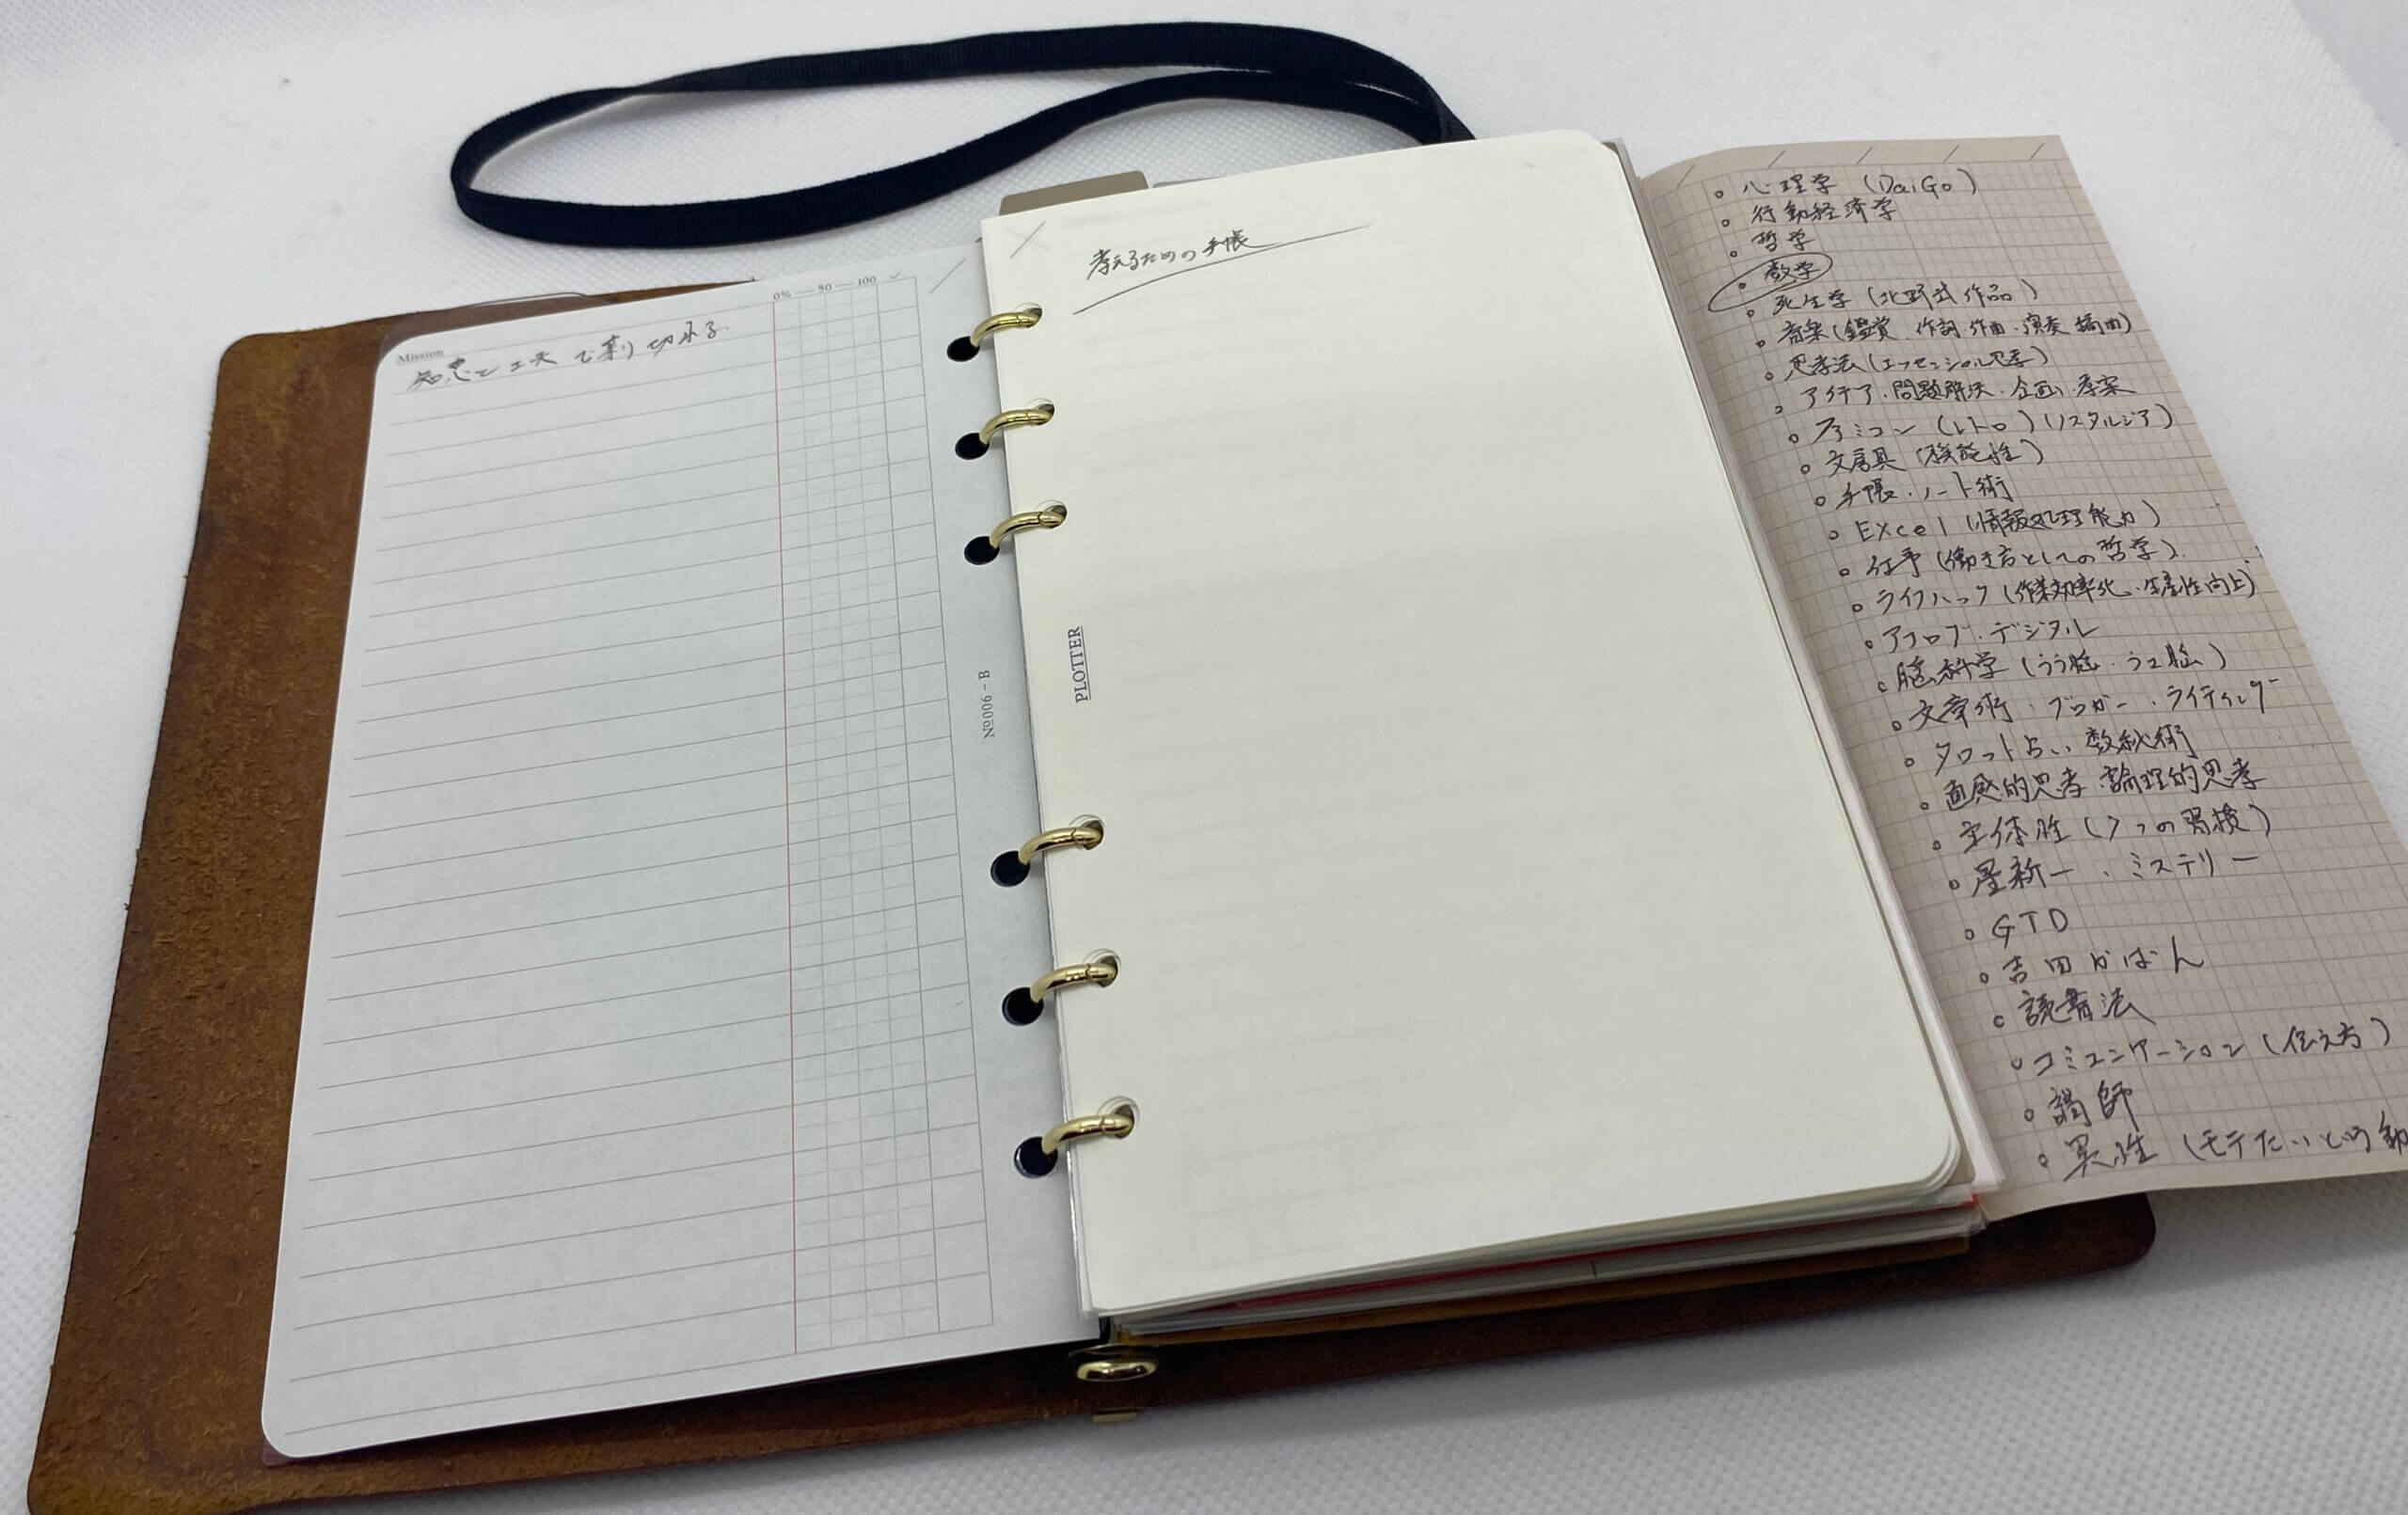 Mission
知恵と工夫で乗り切れる
0% — 50 — 100 ✓
No006-B
考えるための手帳
PLOTTER
心理学(DaiGo)
行動経済学
哲学
数学
死生学(北野武作品)
音楽(鑑賞・作詞・作曲・演奏・編曲)
思考法(エッセンシャル思考)
アイデア・問題解決・企画・考案
ファミコン(レトロ)(ノスタルジア)
文房具(機能性)
手帳・ノート術
Excel(情報処理能力)
仕事(働き方としての哲学)
ライフハック(作業効率化・生産性向上)
アナログ・デジタル
脳科学(うう脳・うこ脳)
文章術・ブロガー・ライティング
タロット占い 数秘術
直感的思考・論理的思考
主体性(7つの習慣)
星新一・ミステリー
GTD
吉田かばん
読書法
コミュニケーション(伝え方)
講師
異性(モテたいという動